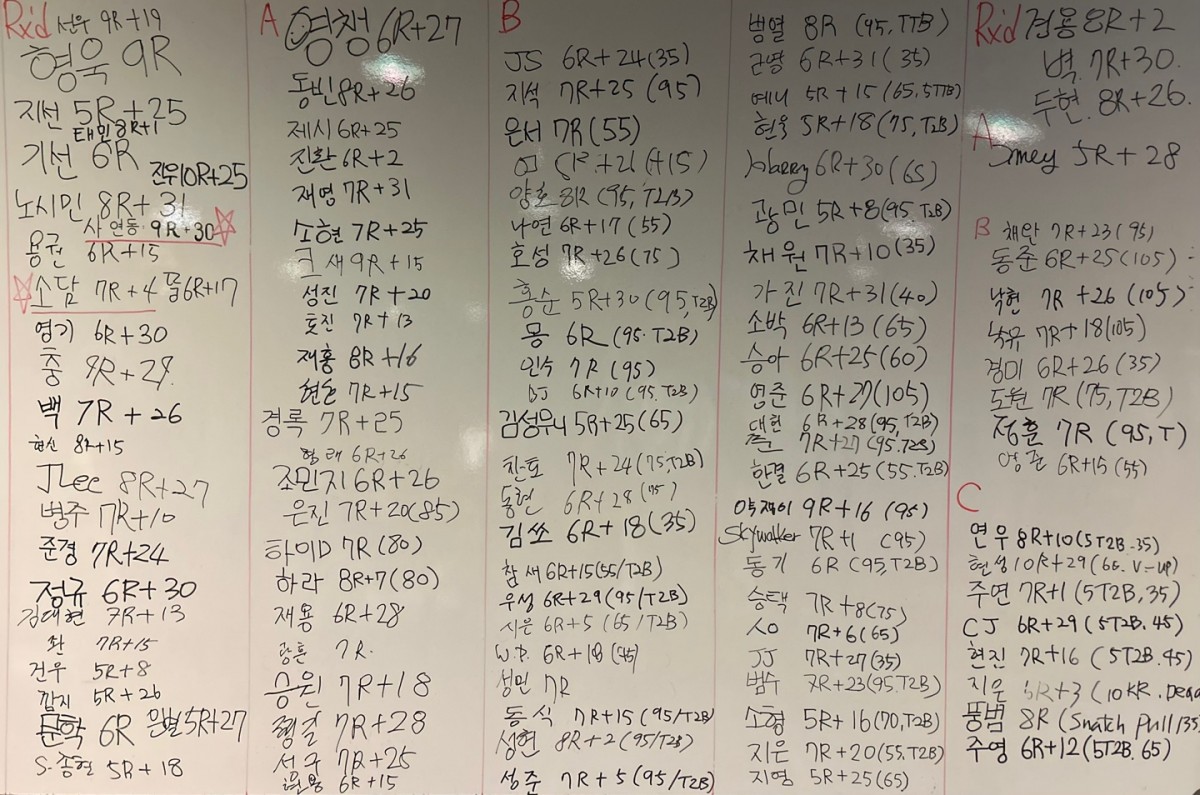 Rx'd 선우 9R+19
형욱 9R
지선 5R+25
태민 8R+1
기선 6R
진우 10R+25
노시민 8R+31
사 연동 9R+30
용권 6R+15
소담 7R+4 뚤 6R+17
영기 6R+30
충 8R+29
백 7R+26
현신 8R+15
JLee 8R+27
병주 7R+10
준경 7R+24
정규 6R+30
김대현 7R+13
환 7R+15
건우 5R+8
깜지 5R+26
문학 6R 은별 5R+27
S.종현 5R+18
A 영챙 6R+27
동빈 8R+26
제시 6R+25
진환 6R+2
재영 7R+31
소현 7R+25
크새 9R+15
성진 7R+20
효진 7R+13
재홍 8R+16
현순 7R+15
경록 7R+25
형래 6R+26
조민지 6R+26
은진 7R+20(85)
하이D 7R(80)
하라 8R+7(80)
재용 6R+28
광훈 7R.
승원 7R+18
7R+28
서구 7R+25
6R+15
B
JS 6R+24(35)
지석 7R+25(95)
은서 7R(55)
양호 8R(95,T2B)
나연 6R+17(55)
호성 7R+26(75)
홍순 5R+30(95,T2B)
몽 6R(95.T2B)
인수 7R(95)
DJ 6R+10(95.T2B)
김성우니 5R+25(65)
찬호 7R+24(75,T2B)
동현 6R+28(75)
김쏘 6R+18(35)
참새 6R+15(55/T2B)
우성 6R+29(95/T2B)
시은 6R+5(65/T2B)
W.P. 6R+18
성민 7R
동식 7R+15(95/T2B)
성현 8R+2(95/T2B)
성준 7R+5(95/T2B)
병열 8R(95,T2B)
근평 6R+31(35)
예니 5R+15(65,5TTB)
현욱 5R+18(75,T2B)
6R+30(65)
광민 5R+8(95.T2B)
채원 7R+10(35)
가진 7R+31(40)
소박 6R+13(65)
승아 6R+25(60)
영준 6R+27(105)
대현 6R+28(95,T2B)
준 7R+27(95.T2B)
한결 6R+25(55.T2B)
약재이 9R+16(95)
Skywalker 7R+1(95)
동기 6R(95,T2B)
승택 7R+8(75)
7R+6(65)
JJ 7R+27(35)
범수 7R+23(95.T2B)
소형 5R+16(70,T2B)
지은 7R+20(55.T2B)
지영 5R+25(65)
Rx'd 견용 8R+2
벽. 7R+30.
두현. 8R+26.
A
Jmey 5R+28
B 채안 7R+23(95)
동준 6R+25(105)
낙현 7R+26(105)
낙유 7R+18(105)
경미 6R+26(35)
도원 7R(75,T2B)
정훈 7R(95,T)
영준 6R+15(55)
C
연우 8R+10(5T2B.35)
현성 10R+29(65.V-up)
주연 7R+1(5T2B,35)
CJ 6R+29(5T2B.45)
현진 7R+16(5T2B.45)
지우 6R+3(10KR.Dead
풍범 8R(Snatch Pull135
주영 6R+12(5T2B.65)